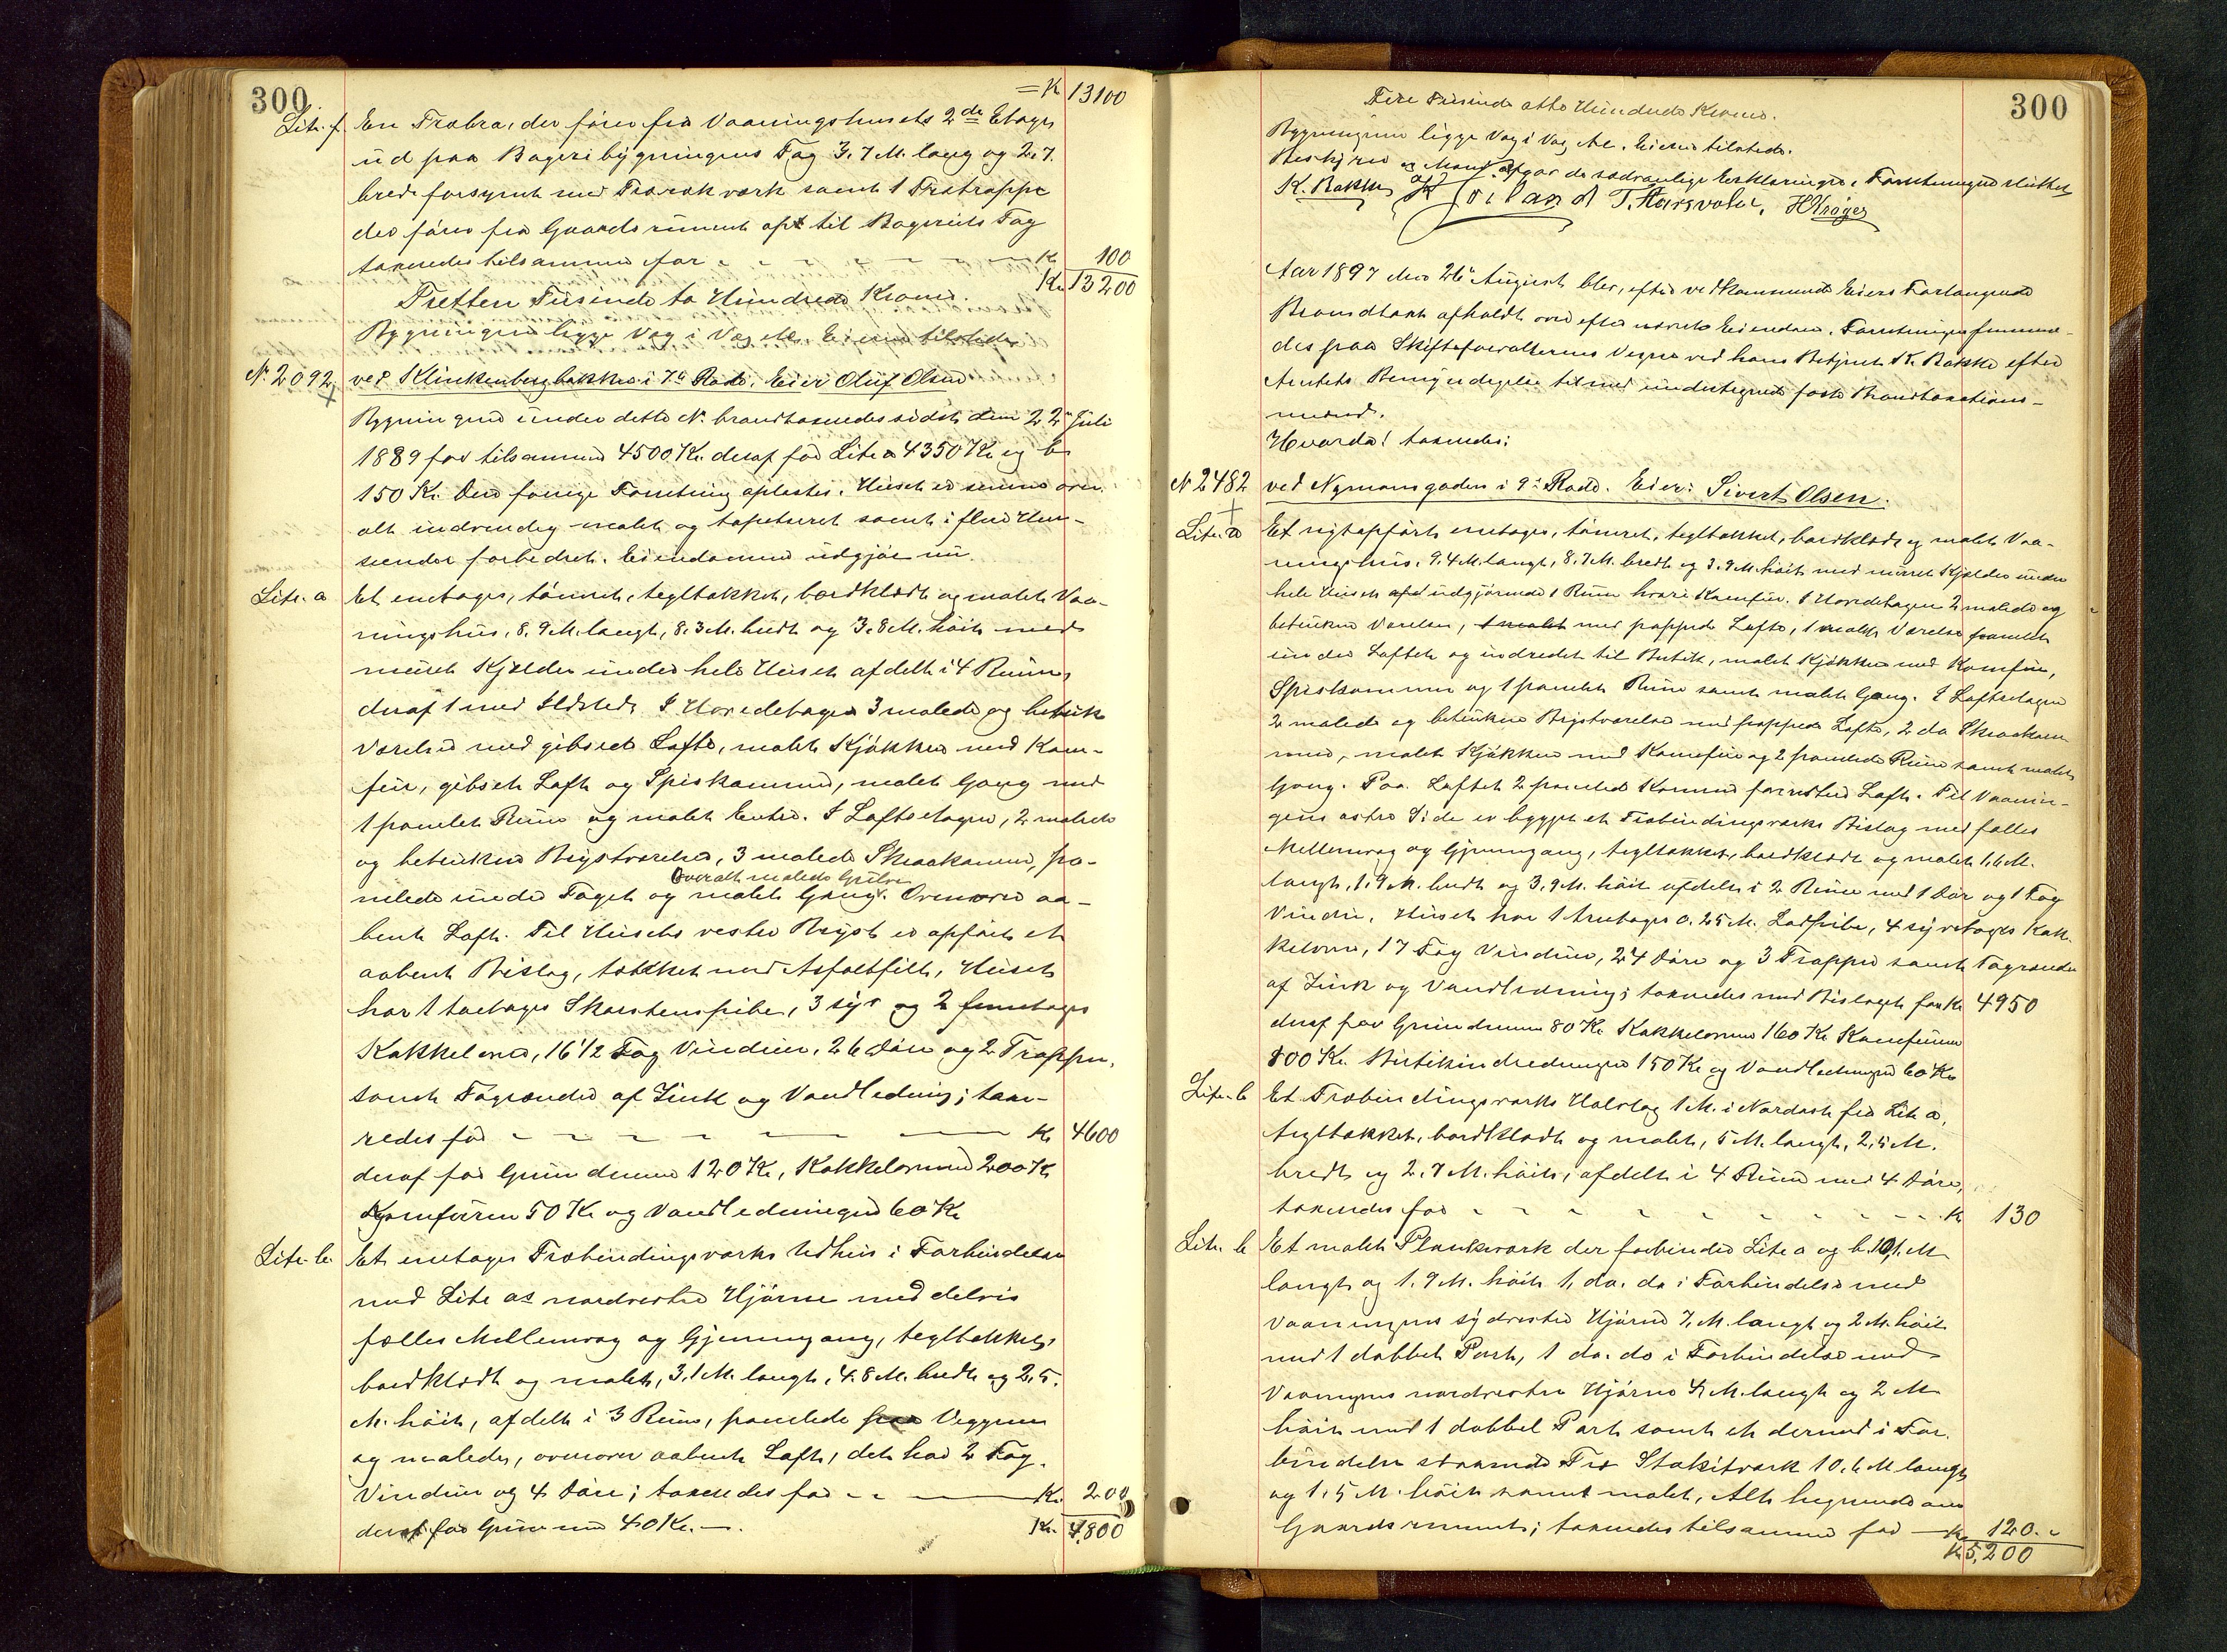 300
= K 13100
Litr. f. En Træbro, der fører fra Vaaningshusets 2de Etage
ud paa Bageribygningens Tag 3.7 M. lang og 2.7.
bred forsynet med Trærækværk samt 1 Trætrappe
der fører fra Gaardsrummet op til Bageriets Tag
taxeredes tilsammen for - - - Kr 100
Kr 13200
Tretten Tusinde to Hundrede Kroner.
Bygningerne ligge Væg i Væg etc. Eieren tilstede
No. 2092 ved Klinkenbergbakken i 7de Rode. Eier Oluf Olsen
Bygningerne under dette No. brandtaxeredes sidst den 22de Juli
1889 for tilsammen 4500 Kr. deraf for Litr a 4350 Kr og b
150 Kr. Den forrige Forretning oplæstes. Huset er senere over-
alt indvendig malet og tapetseret samt i flere Hen-
seender forbedret. Eiendommen udgjør nu
Litr. a Et enetages, tømret, tegltækket, bordklædt og malet Vaa-
ningshus, 8.9 M. langt, 8.3 M. bredt og 3.8 M. høit med
muret Kjælder under hele Huset afdelt i 4 Rum,
deraf 1 med Ildsted. I Hovedetagen 3 malede og betrukne
Værelser med gibsede Lofte, malet Kjøkken med Kom-
fur, gibset Loft og Spiskammer, malet Gang med
1 panelet Rum og malet Entre. I Loftsetagen, 2 malede
og betrukne Brystværelser, 3 malede Skraakammere, pa-
Overalt malede Gulve
nelede under Taget og malet Gang. Ovenover aa-
bent Loft. Til Husets vestre Bryst er opført et
aabent Bislag, tækket med Asfaltfilt, Huset
har 1 toetages Skorstenspibe, 3 syv og 2 femetages
Kakkelovne, 16 1/2 Fag Vinduer, 26 Døre og 2 Trapper,
samt Tagrender af Zink og Vandledning; taxe-
redes for - - - Kr 4600
deraf for Grundmuren 120 Kr, Kakkelovnene 200 Kr
Komfuren 50 Kr og Vandledningen 60 Kr
Litr. b. Et enetages Træbindingsværks Udhus i Forbindelse
med Litr as nordvestre Hjørne med delvis
fælles Mellemvæg og Gjennemgang, tegltækket,
bordklædt og malet, 3.1 M. langt, 4.8 M. bredt og 2.5.
M. høit, afdelt i 3 Rum, panelede paa Væggene
og malede, ovenover aabent Loft, det har 2 Fag.
Vinduer og 4 Døre; taxeredes for - - - Kr. 200
deraf for Grunmuren 40 Kr. —. Kr. 4,800
300
Fire Tusinde otte Hundrede Kroner.
Bygningerne ligge Væg i Væg etc. Eieren tilstede.
Bestyrer og Mænd afgav de sædvanlige Erklæringer. Forretningen sluttet
K. Bakke T. Aarsvold, H Krøger
Aar 1897 den 26de August blev, efter vedkommende Eiers Forlangende
Brandtaxt afholdt over efternævnte Eiendom. Forretningen fremme-
des paa Skifteforvalterens Vegne ved hans Betjent K. Bakke efter
Amtets Bemyndigelse tilligemed undertegnede faste Brandtaxtations-
mænd.
Hvorda! taxeredes:
No 2482 ved Nymansgaden i 9de Rode. Eier: Sivert Olsen.
Litr. a Et nyt opført enetages, tømret, tegltækket, bordklædt og malet Vaa-
ningshus, 9.4 M. langt, 8.7 M. bredt og 3.9 M. høit med muret Kjælder under
hele Huset udgjørende 1 Rum hvori Komfur. I Hovedetagen 2 malede og
betrukne Værelser, med pappede Lofte, 1 malet Værelse panelet
under Loftet og indredet til Butik, malet Kjøkken med Komfur,
Spiskammer og 1 panelet Rum samt malet Gang. I Loftsetagen
2 malede og betrukne Brystværelser med pappede Lofte, 2 do Skraakam-
mere, malet Kjøkken med Komfur og 2 panelede Rum samt malet
Gang. Paa Loftet 2 panelede Kammere forresten Loft. Til Vaanin-
gens østre Side er bygget et Træbindingsværks Bislag med fælles
Mellemvæg og Gjennemgang, tegltækket, bordklædt og malet 1.6 M.
langt, 1.9 M. bredt og 3.9 M. høit afdelt i 2 Rum med 1 Dør og 1 Fag
Vindue. Huset har 1 treetages 0.25 M. Ladpibe, 4 syvetages Kak-
kelovne, 17 Fag Vinduer, 24 Døre og 3 Trapper samt Tagrender
af Zink og Vandledning; taxeredes med Bislaget for Kr 4950
deraf for Grundmuren 80 Kr Kakkelovnene 160 Kr Komfurene
100 Kr. Butikindredningen 150 Kr og Vandledningen 60 Kr
Litr. b Et Træbindingsværks Halvtag 1 M. i Nordost fra Litr a,
tegltækket, bordklædt og malet, 5 M. langt, 2.5 M.
bredt og 2.7 M. høit, afdelt i 4 Rum med 4 Døre,
taxeredes for - - - Kr 130
Litr. c Et malet Plankværk der forbinder Litr a og b. 10,1. M
langt og 1.9 M. høit 1, do. do i Forbindelse med
Vaaningens sydvestre Hjørne 7. M. langt og 2 M. høit
med 1 dobbelt Port, 1 do. do i Forbindelse med
Vaaningens nordvestre Hjørne 4 M. langt og 2 M
høit med 1 dobbel Port samt et dermed i For-
bindelse staaende Træ Stakitværk 10.6 M langt
og 1.5 M. høit samt malet, Alt hegnende om
Gaardsrummet; taxeredes tilsammen for — Kr 120.-
Kr 5,200